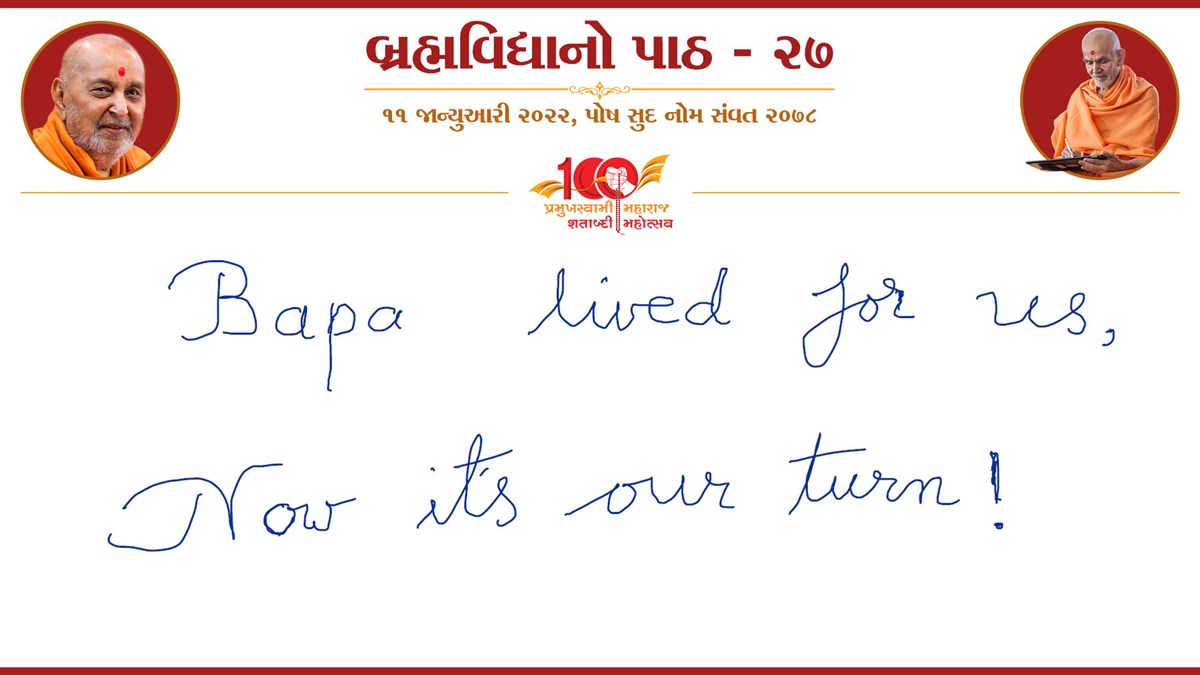 બ્રહ્મવિદ્યાનો પાઠ - ૨૭
૧૧ જાન્યુઆરી ૨૦૨૨, પોષ સુદ નોમ સંવત ૨૦૭૮
100
પ્રમુખસ્વામી મહારાજ
શતાબ્દી મહોત્સવ
Bapa lived for us,
Now it's our turn!